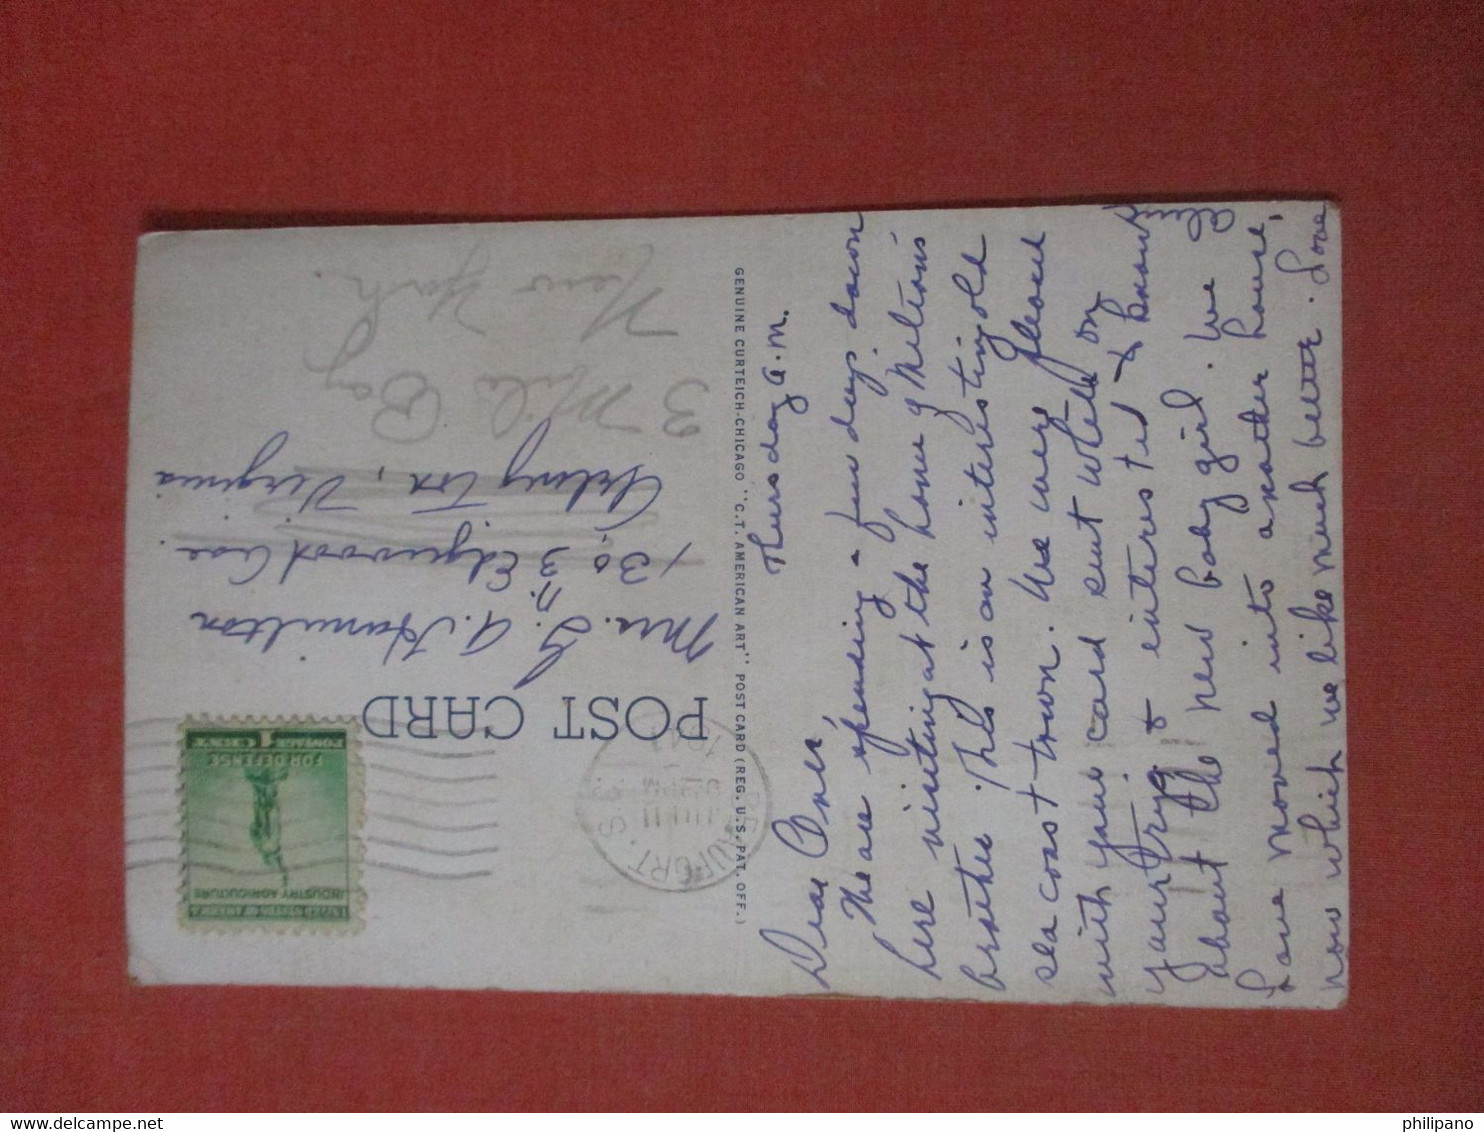 Thursday a.m.
Dear Ones,
We are spending a few days down
here visiting at the home of Milton's
brother. This is an interesting old
sea coast town. We were pleased
with your card sent while on
your trip & interested to know
about the new baby girl. We
have moved into another house,
now which we like much better. Love
GENUINE CURTEICH-CHICAGO "C.T. AMERICAN ART" POST CARD (REG. U.S. PAT. OFF.)
POST CARD
UNITED STATES OF AMERICA
INDUSTRY AGRICULTURE
FOR DEFENSE
POSTAGE 1 CENT
BEAUFORT, S.
JUL 11
PM
1941
Mrs. G. A. Hamilton
1303 N. Edgewood Ave.
Arlington, Virginia
3 Mile Bay
New York.
delcampe.net
philipano